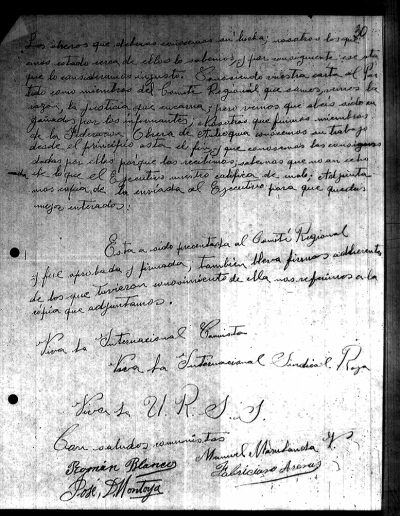 30
Los obreros que debemos conocemos su lucha; nosotros los que
emos estado cerca de ellos lo sabemos, y por consiguiente ese
que lo consideramos injusto. Conociendo vuestra carta al Par-
tido como miembros del Comité Regional que somos, vemos la
razón, la justicia que encarna; pero vemos que abeis sido en
gañados por los informantes; nosotros que fuimos miembros
de la Federacion Obrera de Antioquia conocemos su trabajo
desde el principio asta el fin, y que conocemos las consignas
dadas por ellos porque las recibimos, sabemos que no an echo
de lo que el Ejecutivo nuestro califica de malo; Adjunta
mos copia de la enviada al Ejecutivo para que quedes
mejor enterados.
Esta a sido presentada al Comité Regional
y fue aprobada y firmada, también lleva firmas adherentes
de los que tuvieron conocimiento de ella nos referimos a la
copia que adjuntamos.
Viva la Internacional Comista
Viva la Internacional Sindical Roja
Viva la U.R.S.S.
Con saludos comunistas
Román Blanco
Manuel Marulanda
José, D. Montoya
Arenas